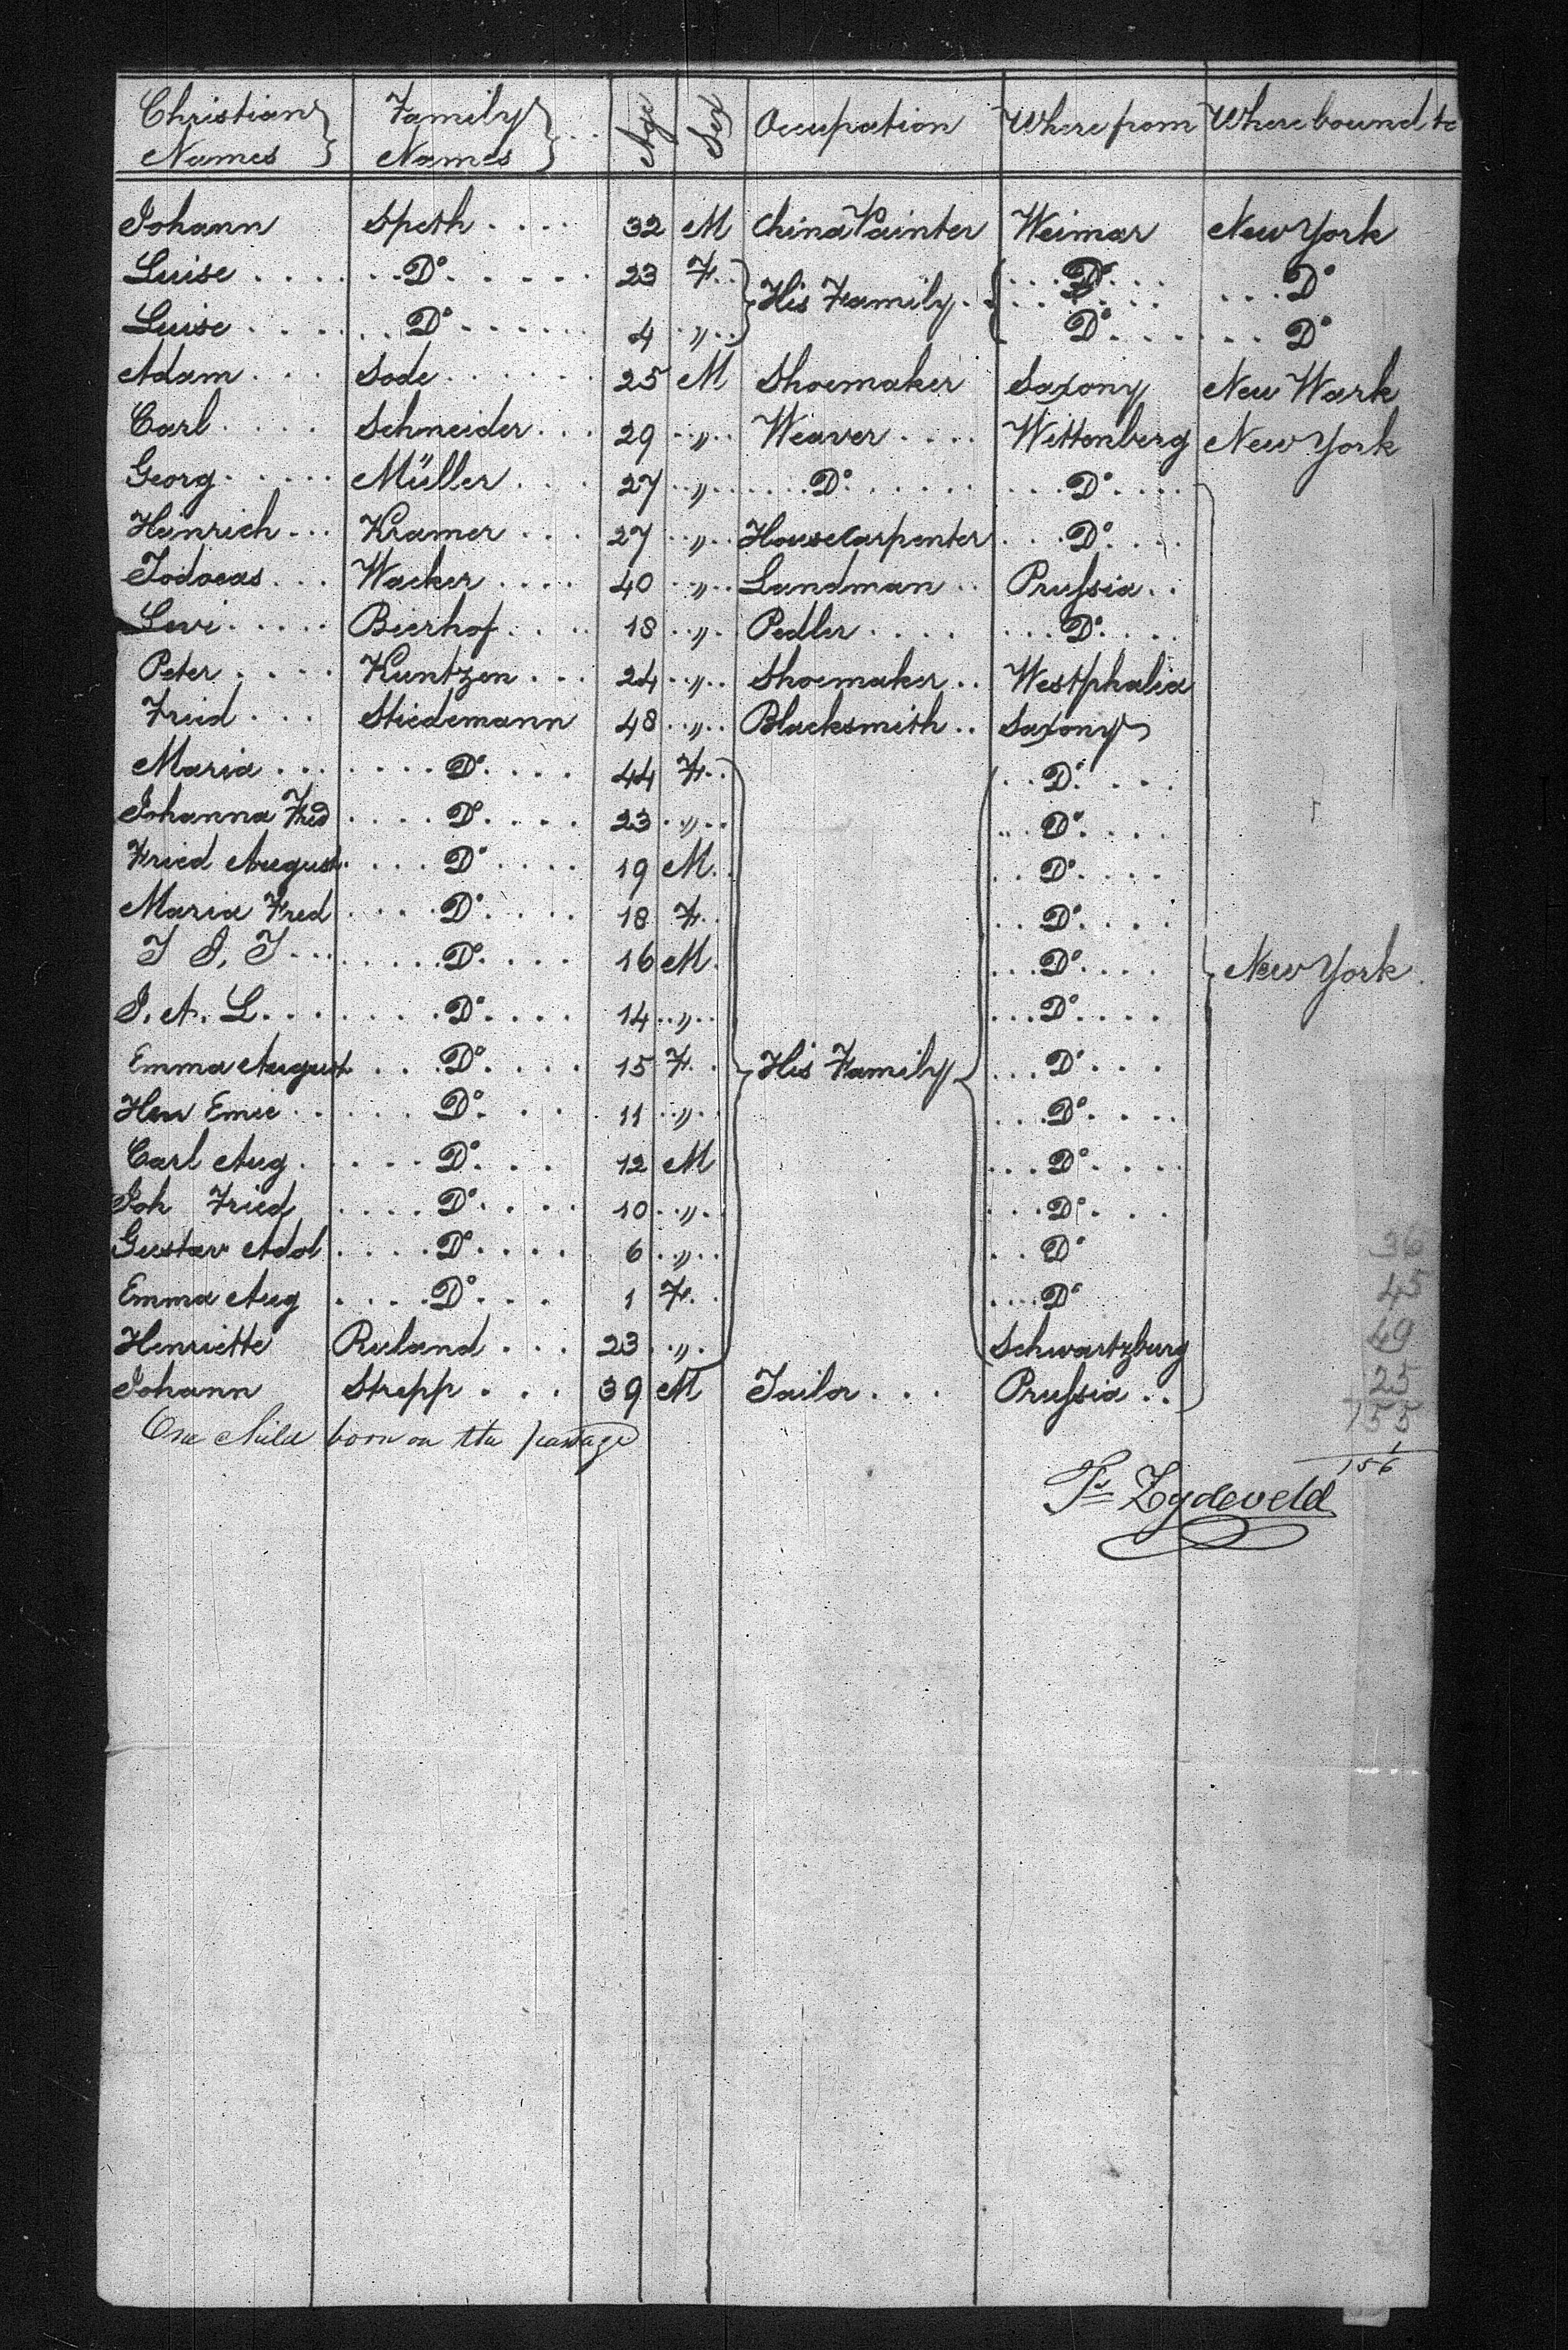 Christian Names } Family Names } .. Age Sex Occupation Where from Where bound to
Johann Speth .... 32 M China Painter Weimar New York
Luise .... ... Dº ..... 23 F.. } His Family .. { ... Dº ... ... Dº
Luise .... .. Dº ...... 4 .〃.. Dº ...... Dº
Adam ... Sode ...... 25 M Shoemaker Saxony New Wark
Carl .... Schneider ... 29 ..〃.. Weaver .... Wittenberg New York
Georg ..... Müller .... 27 ..〃.. .... Dº ...... ... Dº ....
Heinrich ... Kramer .... 27 ..〃.. House Carpenter ... Dº ....
Jodocas ... Wacker .... 40 ..〃.. Landman .. Prußia ..
Levi ..... Bierhof .... 18 ..〃.. Pedler .... ... Dº ....
Peter .... Kuntzen ... 24 ..〃.. Shoemaker .. Westphalia
Fried ... Stiedemann 48 ..〃.. Blacksmith .. Saxony
Maria ... .... Dº .... 44 F.. ... Dº ....
Johanna Fred .... Dº .... 23 ..〃.. ... Dº ....
Fried August .... Dº .... 19 M.. ... Dº ....
Maria Fred .... Dº .... 18 F.. ... Dº ....
J J, J ... .... Dº .... 16 M. ... Dº .... } New York.
J. A. L .... .... Dº .... 14 ..〃.. ... Dº ....
Emma August ... Dº .... 15 F.. } His Family { ... Dº ...
Hen Emie .. .... Dº ... 11 ..〃.. ... Dº ....
Carl Aug. .... Dº ... 12 M ... Dº ....
Joh Fried .... Dº .... 10 ..〃.. ... Dº ...
Gustav Adol .... Dº .... 6 ..〃.. .. Dº 36
Emma Aug .... Dº ... 1 F.. .... Dº 45
Henriette Ruland ... 23 ..〃.. Schwartzburg 49
Johann Strepp ... 39 M Tailor ... Prußia .. 25
155
One child born on the passage
1
156
Zydeveld